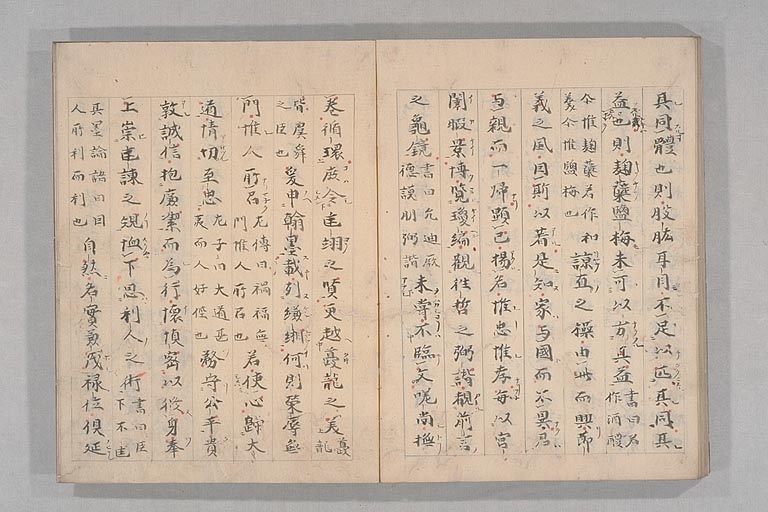 其同體也則股肱耳目不足以匹其同其
益也則麹糵鹽梅未可以方其益書曰若作酒醴
尒惟麹糵若作和羹尒惟鹽梅也諒直之操由此而興節
義之風因斯以著是知家与國而不異君
与親而一歸顯己揚名惟忠惟孝每以宮
闈暇景博覽瓊編觀往哲之弼諧覩前言
之龜鏡書曰允迪厥德謨明弼諧未嘗不臨文嗟尚撫
卷循環庶令匡翊之賢更越夔龍之美夔龍
皆虞舜之臣也爰申翰墨載列縑緗何則榮辱無
門惟人所召左傳曰禍福無門惟人所召也若使心歸大
道情切至忠老子曰大道甚夷而人好徑也務守公平貴
敦誠信抱廉潔而為行懷慎密以修身奉
上崇匡諫之規恤下思利人之術書曰臣下不匡
其墨論語曰因人所利而利也自然名實兼茂祿位俱延